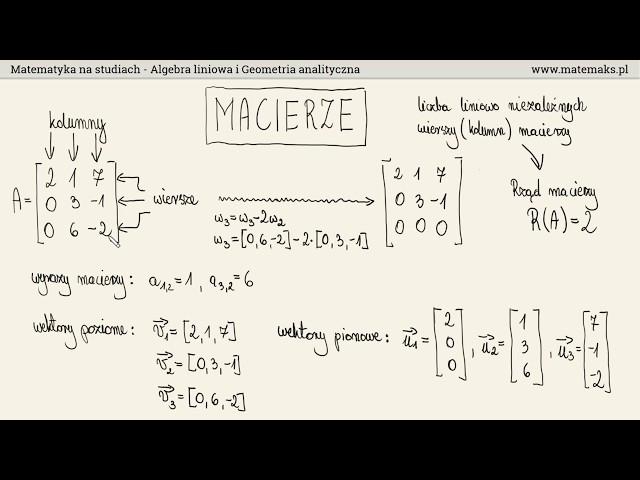 Matematyka na studiach - Algebra liniowa i Geometria analityczna
www.matemaks.pl
MACIERZE
kolumny
A = [2 1 7
0 3 -1
0 6 -2]
wiersze
w₃=w₃-2w₂
w₃=[0,6,-2]-2·[0,3,-1]
[2 1 7
0 3 -1
0 0 0]
liczba liniowo niezależnych
wierszy (kolumn) macierzy
Rząd macierzy
R(A)=2
wyrazy macierzy: a₁,₂=1 , a₃,₂=6
wektory poziome: v⃗₁=[2,1,7]
v⃗₂=[0,3,-1]
v⃗₃=[0,6,-2]
wektory pionowe: u⃗₁=[2 0 0], u⃗₂=[1 3 6], u⃗₃=[7 -1 -2]